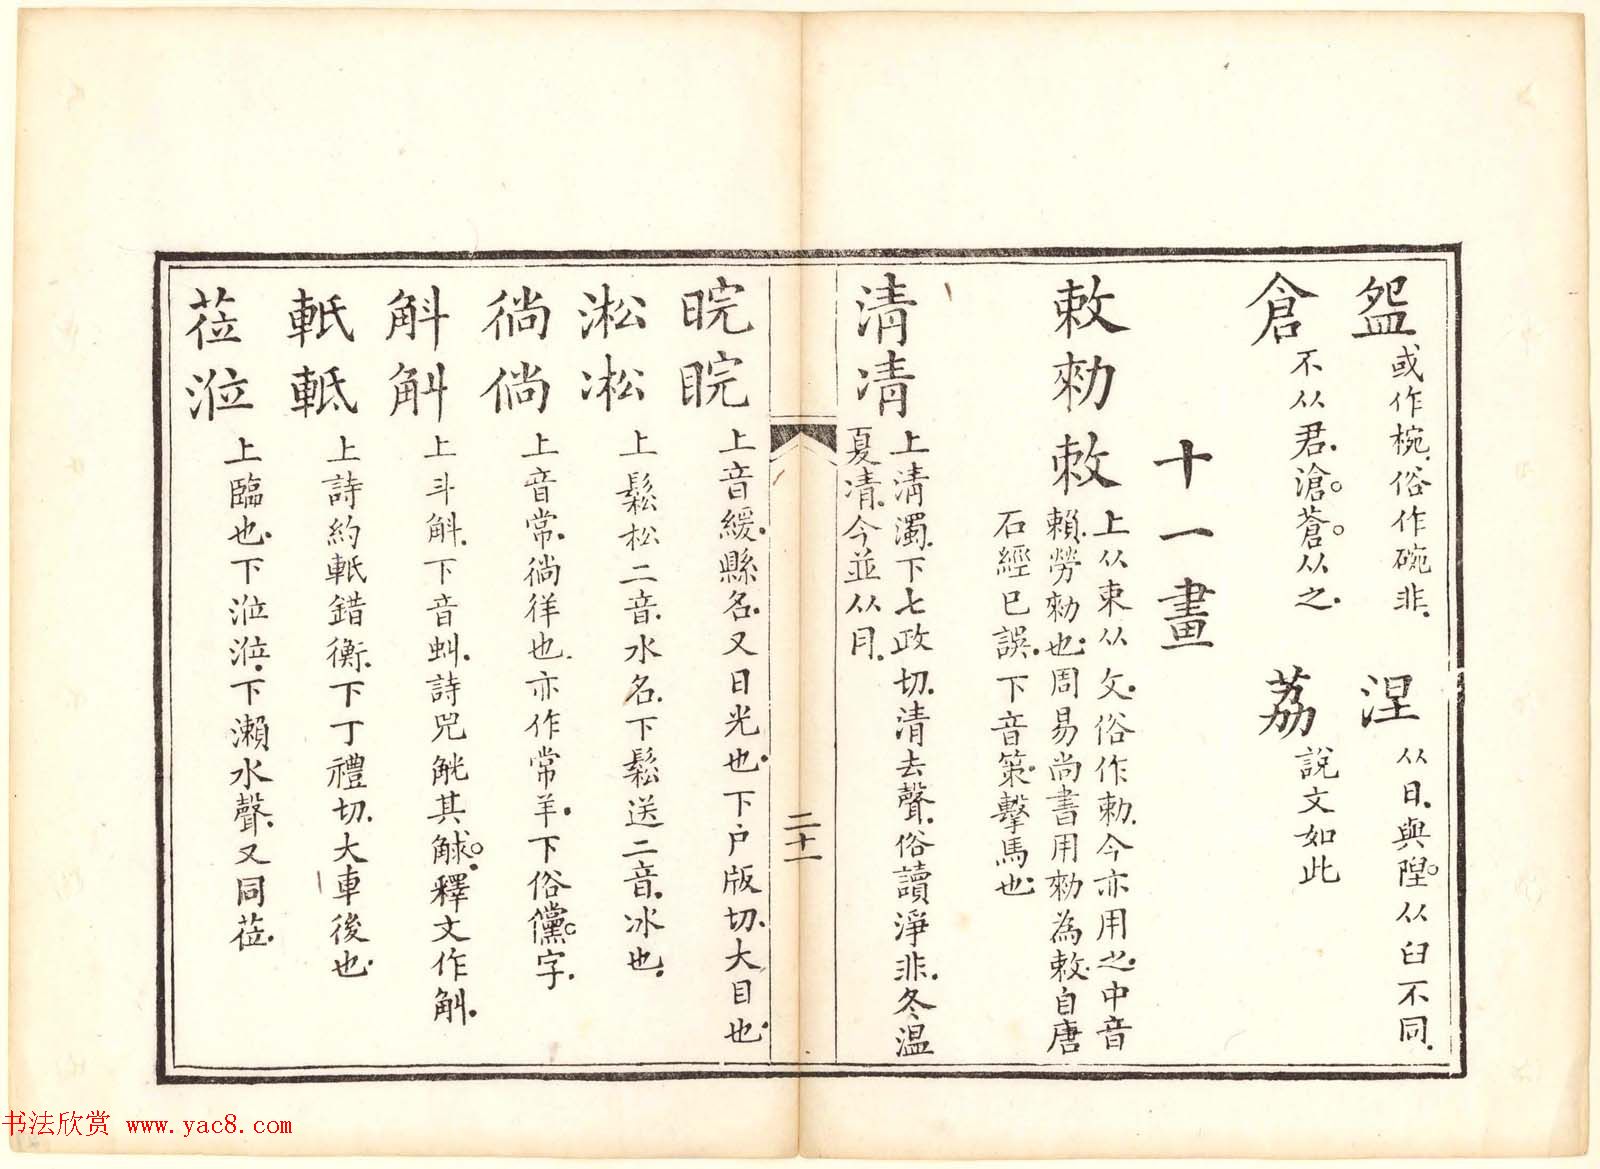 盌 或作椀.俗作碗非. 涅 从日.與隉从臼不同.
倉 不从君.滄蒼从之. 荔 說文如此
十一畫
敕勑敇 上从束从攵.俗作勅.今亦用之.中音
賴.勞勑也.周易尚書用勑為敕.自唐
石經已誤.下音策.擊馬也
清凊 上清濁.下七政切.清去聲.俗讀淨非.冬温
夏凊.今並从月.
二十一
晥睆 上音緩.縣名.又日光也.下户版切.大目也.
淞凇 上鬆松二音.水名.下鬆送二音.冰也.
徜倘 上音常.徜徉也.亦作常羊.下俗儻字.
斛斠 上斗斛.下音虯.詩兕觥其觩.釋文作斛.
軝軧 上詩約軝錯衡.下丁禮切.大車後也.
莅涖 上臨也.下涖涖.下瀨水聲.又同莅.
书法欣赏 www.yac8.com